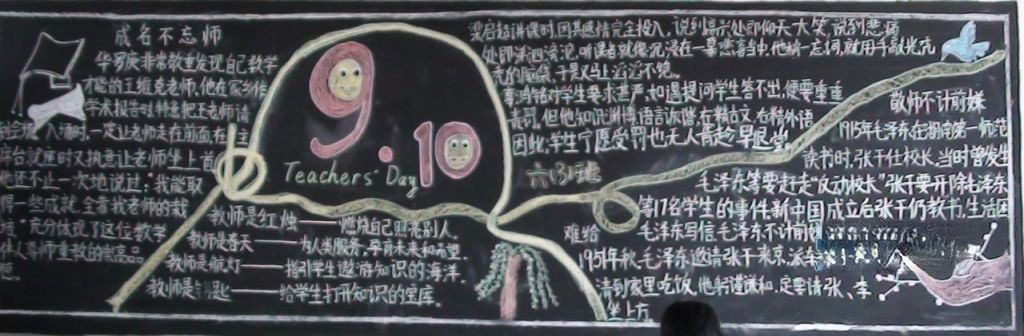 成名不忘师
华罗庚非常敬重发现自己数学
才能的王维克老师,他在家乡作
学术报告时,特意把王老师请
入场时,一定让老师走在前面,在主
席台就座时又执意让老师坐上首
他还不止一次地说过:我能取
得一些成就,全靠我老师的栽
充分体现了这位数学
人尊师重教的崇高品
9.10
Teachers' Day
教师是红烛——燃烧自己照亮别人
教师是春天——为人类服务,孕育未来和希望.
教师是航灯——指引学生遨游知识的海洋.
教师是钥匙——给学生打开知识的宝库.
梁启超讲课时,因其感情完全投入,说到高兴处即仰天大笑,说到悲痛
处即涕泗滂沱,听课者就像沉浸在一
的脑袋,于是又马上滔滔不绝.
辜鸿铭对学生要求甚严,如遇提问学生答不出,便要重重
责罚,但他知识渊博,语言诙谐,右精古又右精外语
因此,学生宁愿受罚也无人肯趁早退堂.
六(3)班
敬师不计前嫌
1915年毛泽东在湖南第一师范
读书时,张干任校长,当时曾发生
毛泽东等要赶走“反动校长”张干要开除毛泽东
等17名学生的事件,新中国成立后张干仍教书,生活困
难给毛泽东写信,毛泽东不计前嫌
1951年秋,毛泽东邀请张干来京,派车
请到家里吃饭,他躬谨谦和,定要请张、李
坐上方.